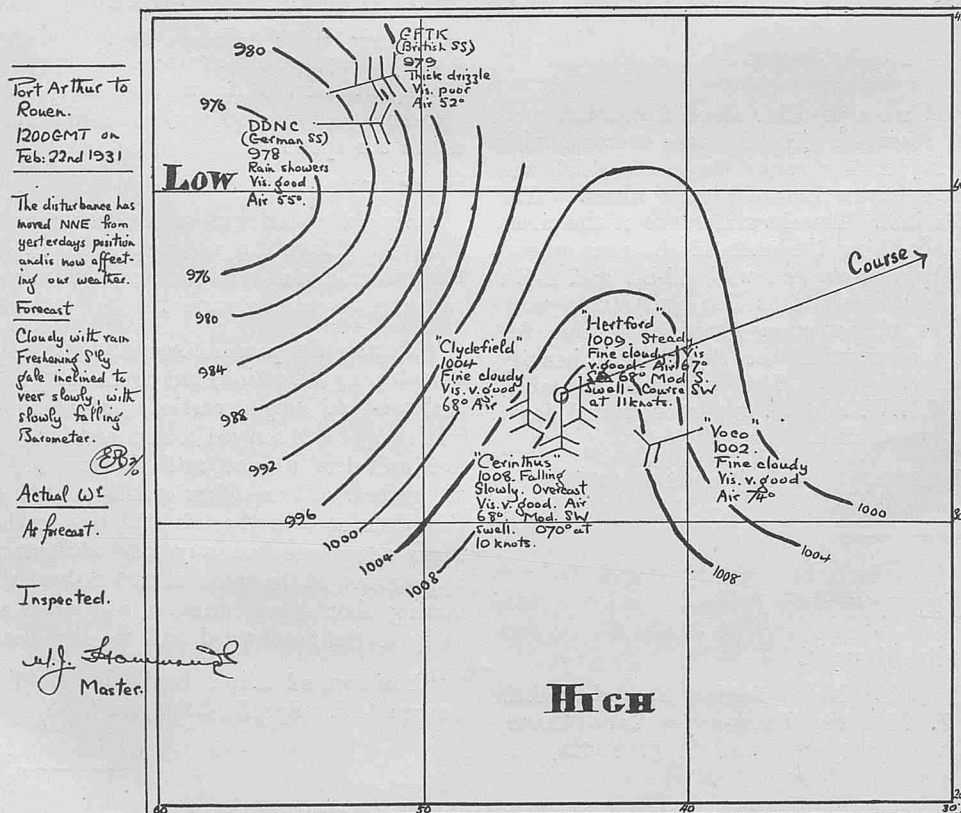 Port Arthur to
Rouen.
1200GMT on
Feb: 22nd 1931
The disturbance has
moved NNE from
yesterdays position
and is now affect-
ing our weather.
Forecast
Cloudy with rain
Freshening S'ly
gale inclined to
veer slowly, with
slowly falling
Barometer.
Actual Wr
As forecast.
Inspected.
Master.
980
976
GFTK
(British SS)
979
Thick drizzle
Vis. poor
Air 52°
DDNC
(German SS)
978
Rain showers
Vis. good
Air 55°.
LOW
976
980
984
988
992
996
1000
1004
1008
"Clydefield"
1004
Fine cloudy
Vis. v. good
68° Air
"Hertford"
1009. Steady
Fine cloudy. Vis
v. good - Air 67°
Sea 68°. Mod S.
Swell - Course SW
at 11 knots.
Course
"Cerinthus"
1008. Falling
Slowly. Overcast
Vis. v. good. Air
68°. Mod. SW
swell. 070° at
10 knots.
"Voco"
1002.
Fine cloudy
Vis. v. good
Air 74°
1000
1004
1008
HIGH
60
50
40
30